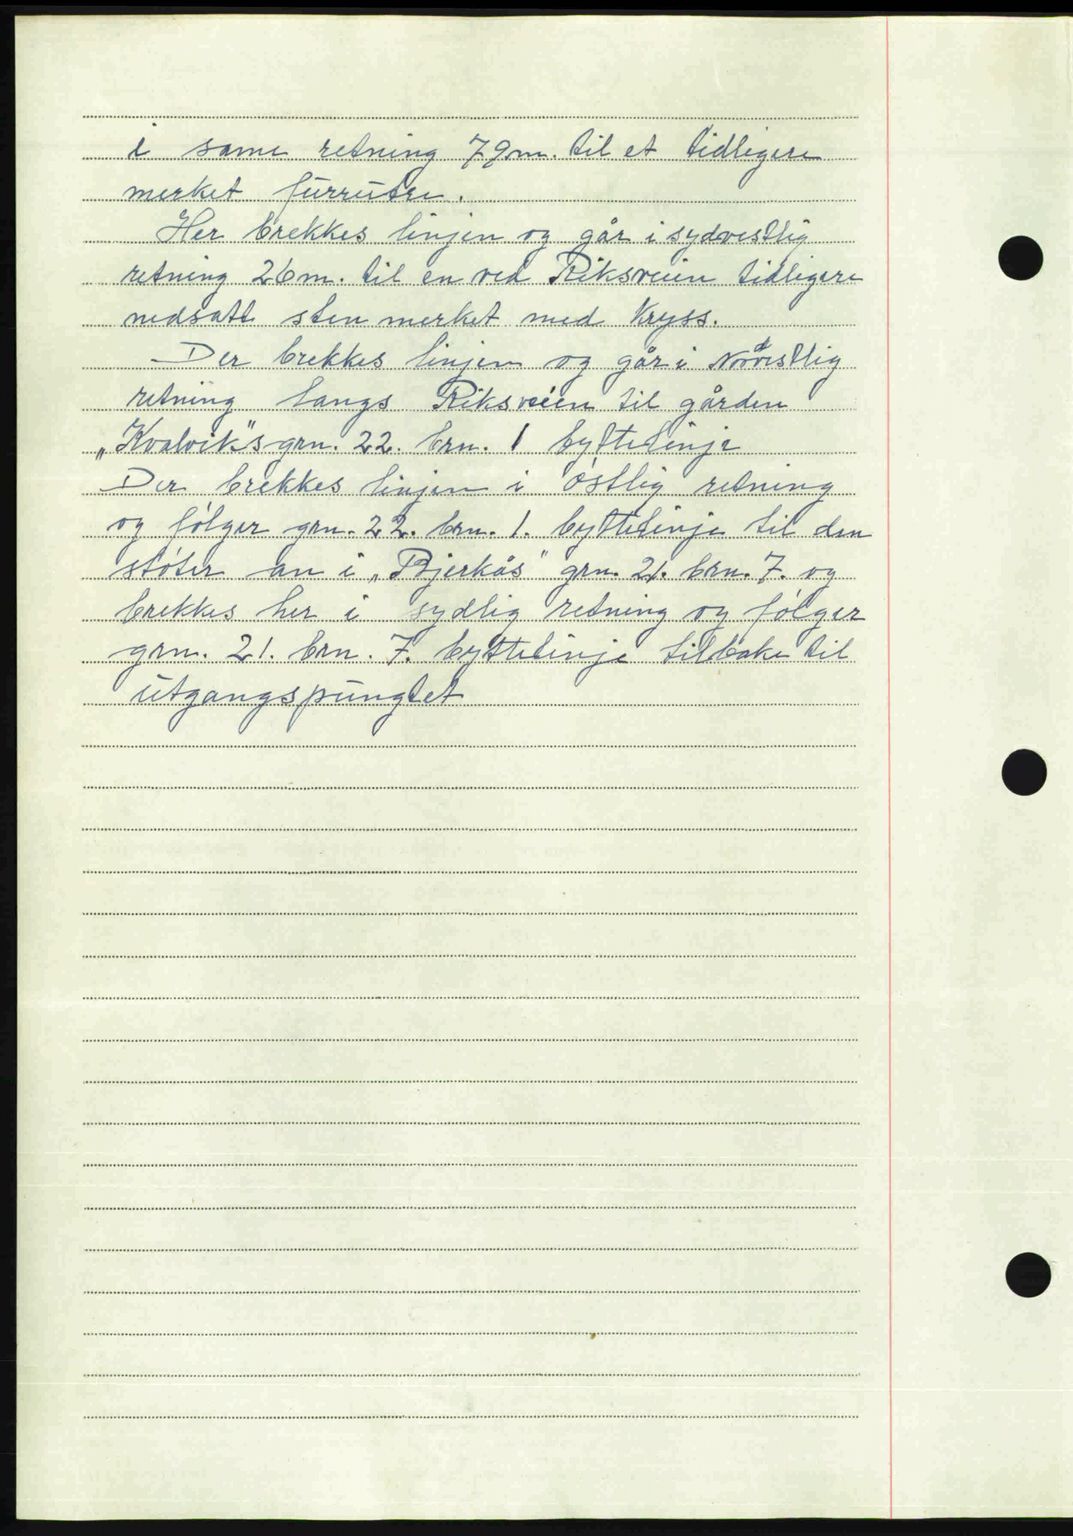 i same retning 79m. til et tidligere
merket furrutre.
Her brekkes linjen og går i sydvestlig
retning 26m. til en ved Riksveien tidligere
nedsatt sten merket med kryss.
Der brekkes linjen og går i Nordvestlig
retning langs Riksveien til gården
„Kvalvik"s grn. 22. brn. 1 byttelinje
Der brekkes linjen i østlig retning
og følger grn. 22. brn. 1. byttelinje til den
støter an i „Bjerkås" grn. 21. brn. 7. og
brekkes her i sydlig retning og følger
grn. 21. brn. 7. byttelinje tilbake til
utgangspungtet